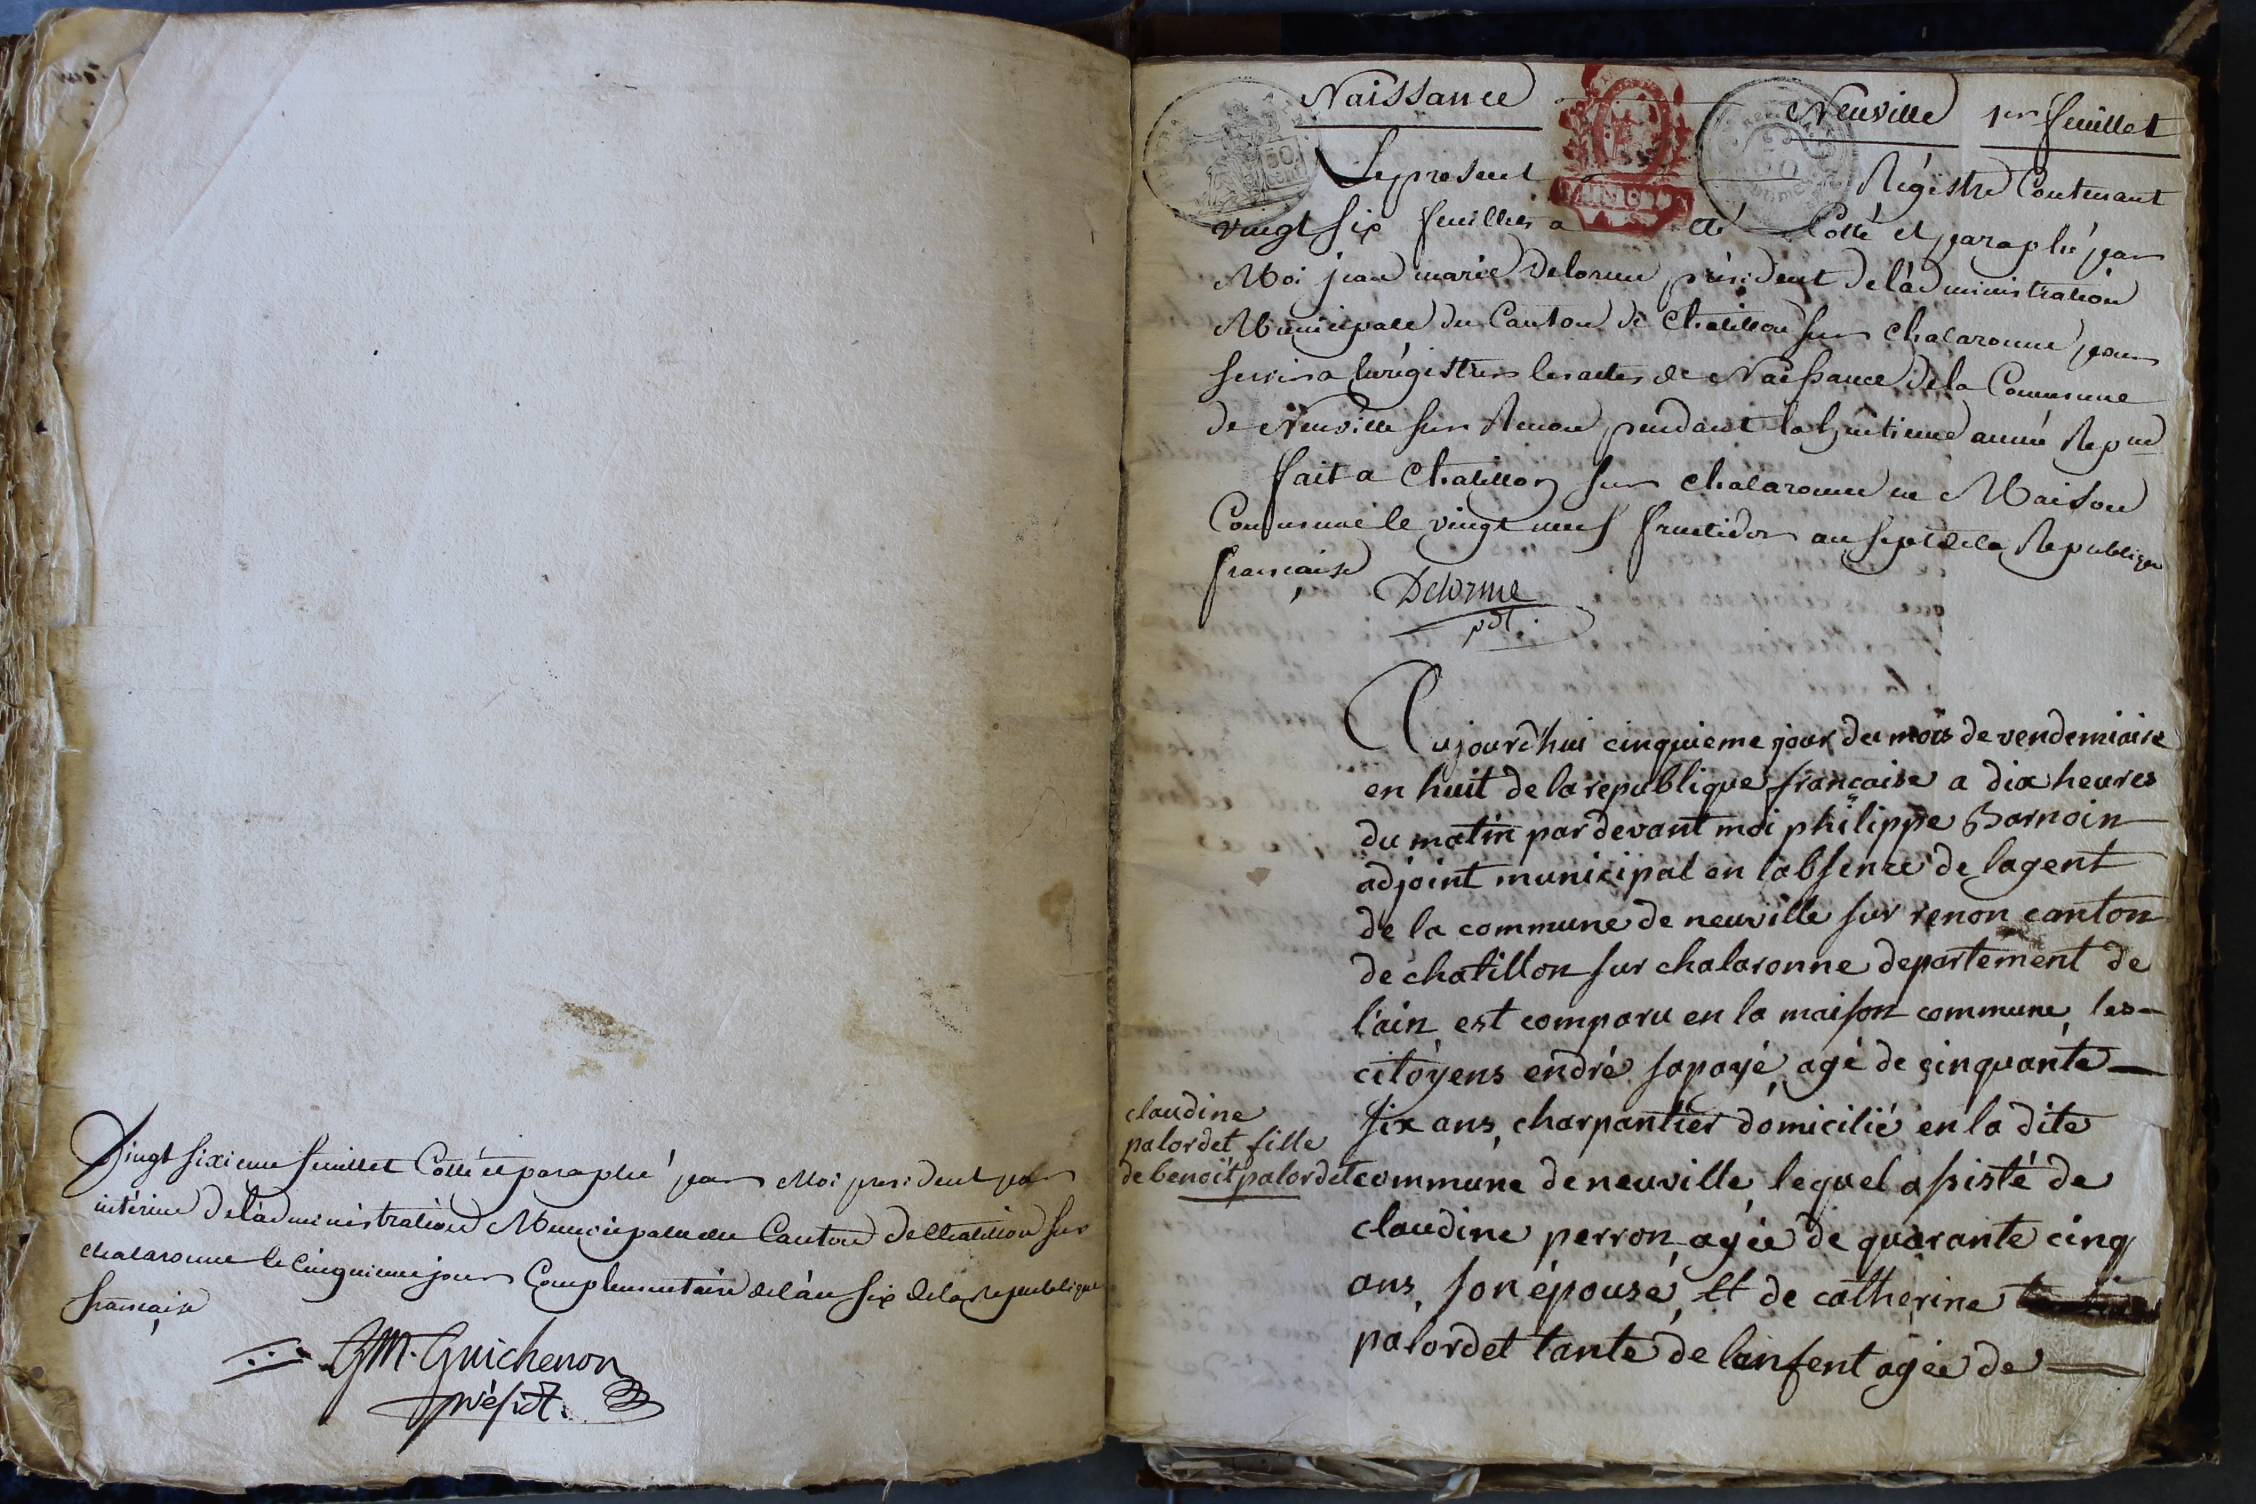 Vingt sixieme feuillet Cotté et paraphé par Moi president par
intérim de l'administration Municipale du Canton de Chatillon sur
chalaronne le cinquieme jour Complementaire de l'an six de la Republique
française
GM. Guichenon
présidt.
Naissance Neuville 1er feuillet
Le present Régistre Contenant
vingt six feuillets a eté Cotté et paraphé par
Moi jean marie Delorme président de l'administration
Municipale du Canton de Chatillon sur chalaronne pour
servir a enrégistrer les actes de Naissance de la Commune
de Neuville sur Renon pendant la huitieme année Repne
fait a Chatillon sur chalaronne en Maison
Commune le vingt neuf fructidor an sept de la Republique
française
Delorme
pdt.
Aujourd'hui cinquieme jour du mois de vendemiaire
en huit de la republique française a dix heures
du matin par devant moi philippe Barnoin
adjoint municipal en l'absence de lagent
de la commune de neuville sur renon canton
de chatillon sur chalaronne departement de
l'ain est comparu en la maison commune les
citoyens endré sapayé agé de cinquante
six ans, charpantier domicilié en la dite
claudine
palordet fille
de benoit palordet
commune de neuville lequel assisté de
claudine perron agée de quarante cinq
ans, son épouse, et de catherine
palordet tante de lanfent agée de